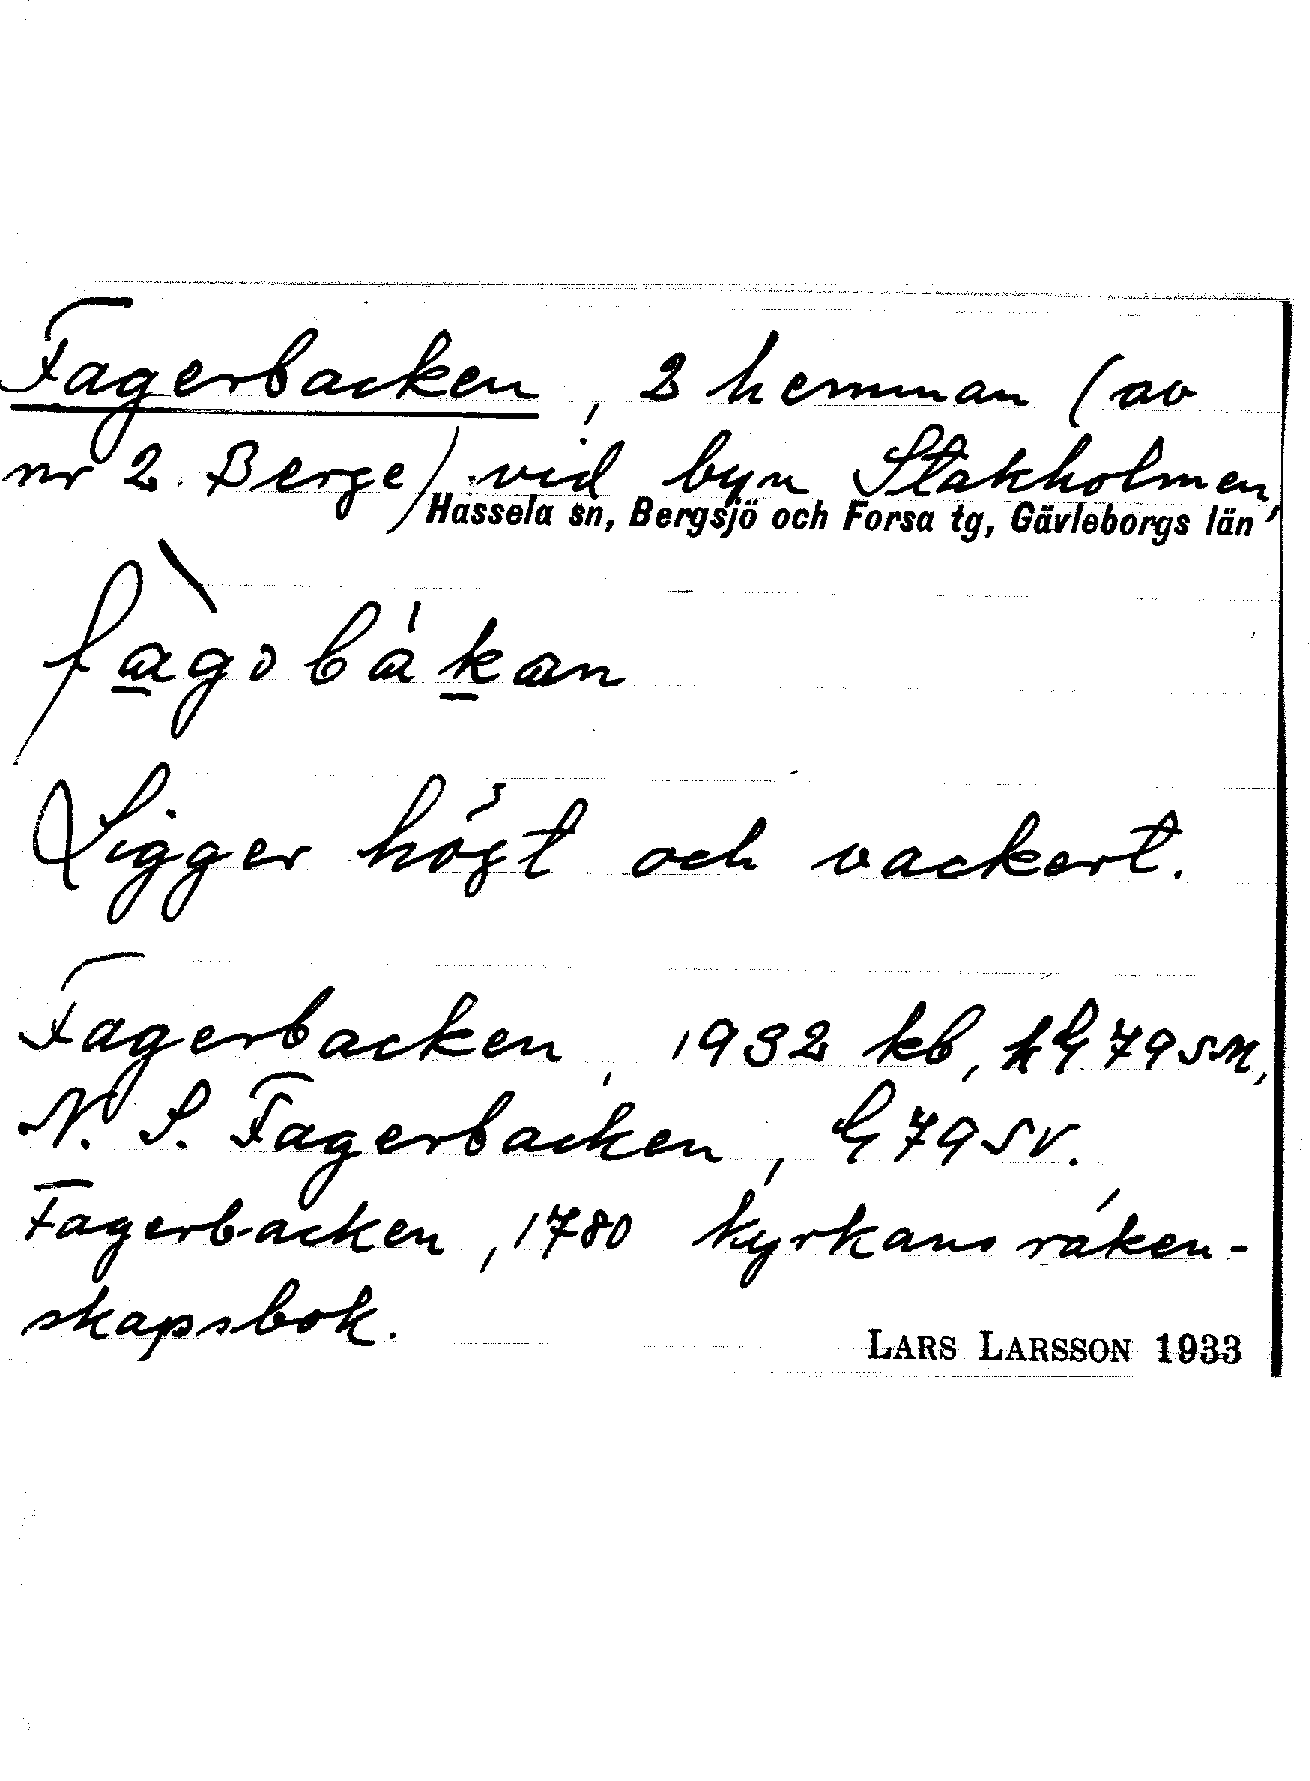 Fagerbacken, 2 hemman (av
nr 2 Berge) vid byn Stakholmen,
Hassela sn, Bergsjö och Forsa tg, Gävleborgs län
Ligger högt och vackert.
Fagerbacken, 1932 kb, 79 SM,
N. S. Fagerbacken, 79 SV.
Fagerbacken, 1780 kyrkans räken-
skapsbok.
LARS LARSSON 1933